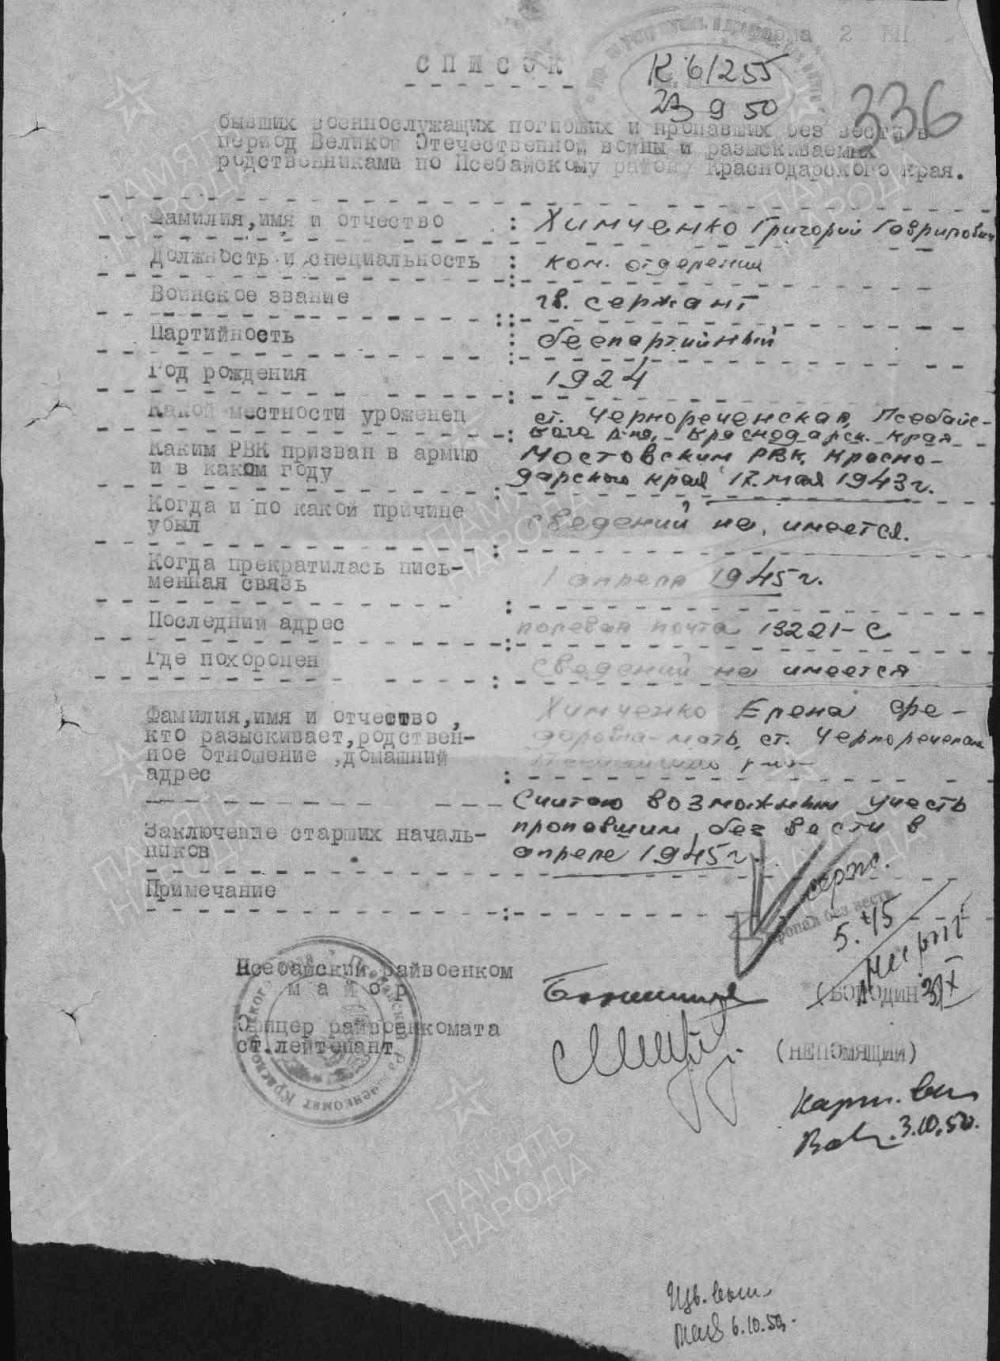 Форма 2 БП
СПИСОК
К 6/255
23 9 50
336
бывших военнослужащих погибших и пропавших без вести в
период Великой Отечественной войны и разыскиваемых
родственниками по Псебайскому району Краснодарского края.
Фамилия,имя и отчество : Химченко Григорий Гаврилович
Должность и специальность : ком. отделения
Воинское звание гв. сержант
Партийность : беспартийный
Год рождения 1924
Какой местности уроженец ст. Чернореченская, Псебайс-
: кого р-на, Краснодарск. края
Каким РВК призван в армию Мостовским РВК, Красно-
и в каком году дарского края 17 мая 1943г.
Когда и по какой причине
убыл сведений не имеется.
Когда прекратилась пись-
менная связь 1 апреля 1945г.
Последний адрес полевая почта 13221-С
Где похоронен сведений не имеется
Фамилия,имя и отчество, Химченко Елена Фе-
кто разыскивает,родствен- доровна-мать, ст. Чернореченская
ное отношение ,домашний Псебайского р-на
адрес
Считаю возможным учесть
Заключение старших началь- пропавшим без вести в
ников апреле 1945г.
Примечание
серж.
пропал без вести
5.45
Псебайский райвоенком
майор
(ВОЛОДИН)
31/X
Офицер райвоенкомата
ст.лейтенант
(НЕПОМЯЩИЙ)
Карт. вып
3.10.50.
Изв. вып.
6.10.50.
ПАМЯТЬ
НАРОДА